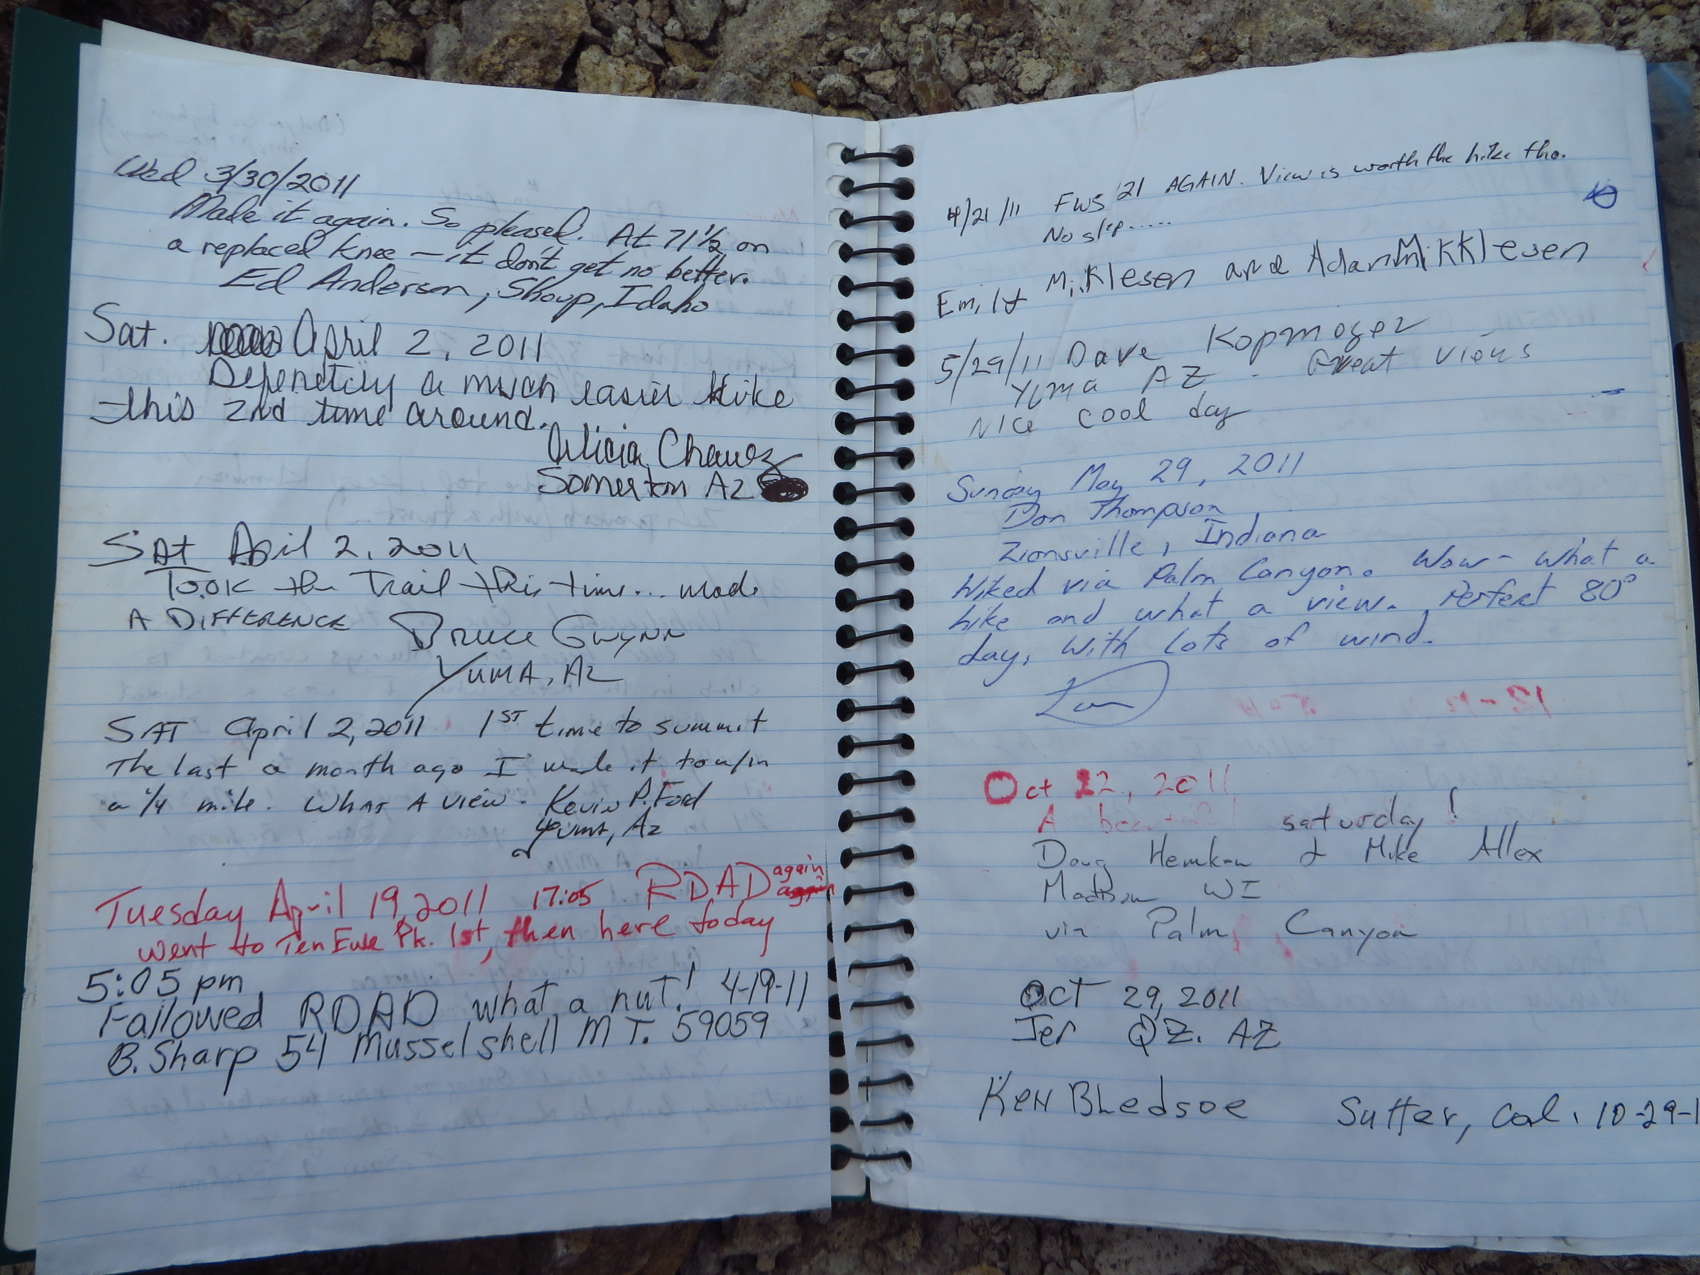 Wed 3/30/2011
Made it again. So pleased. At 71 1/2 on
a replaced knee — it don't get no better.
Ed Anderson, Shoup, Idaho
Sat. April 2, 2011
Defenetily a much easier Hike
this 2nd time around.
Alicia Chavez
Somerton AZ
SAT April 2, 2011
Took the Trail this time... made
A DIFFERENCE Bruce Gwynn
Yuma, Az
SAT April 2, 2011 1ST time to summit
The last a month ago I made it to w/in
a 1/4 mile. What A view. Kevin P. Ford
Yuma, Az
Tuesday April 19, 2011 17:05 RDAD again
went to Ten Ewe Pk. 1st, then here today
5:05 pm
Fallowed RDAD what a nut! 4-19-11
B. Sharp 54 Musselshell MT. 59059
4/21/11 FWS '21 AGAIN. View is worth the hike tho.
No slip.....
Emily Mikklesen and Adam Mikklesen
5/29/11 Dave Kopmoger
Yuma AZ. Great views
Nice cool day
Sunday May 29, 2011
Don Thompson
Zionsville, Indiana
Hiked via Palm Canyon. Wow - what a
hike and what a view. Perfect 80°
day, with lots of wind.
Oct 22, 2011
A saturday!
Doug & Mike Allex
Madison WI
via Palm Canyon
Oct 29, 2011
Jer QZ. AZ
Ken Bledsoe Sutter, Cal. 10-29-1